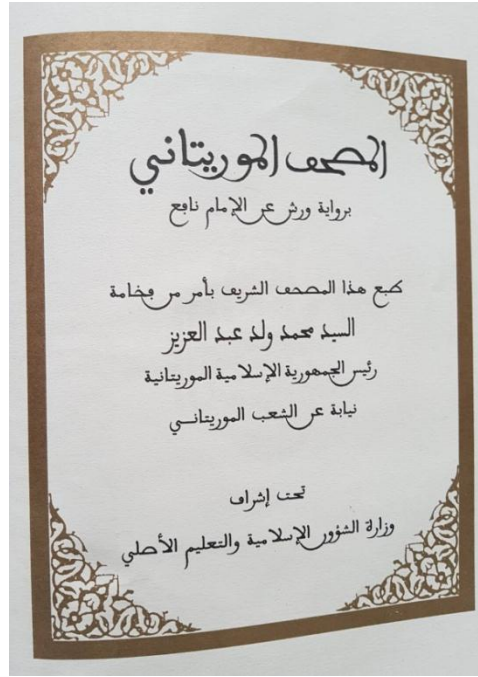 المصحف الموريتاني
برواية ورش عن الإمام نافع
طبع هذا المصحف الشريف بأمر من فخامة
السيد محمد ولد عبد العزيز
رئيس الجمهورية الإسلامية الموريتانية
نيابة عن الشعب الموريتانـــي
تحت إشراف
وزارة الشؤون الإسلامية والتعليم الأصلي